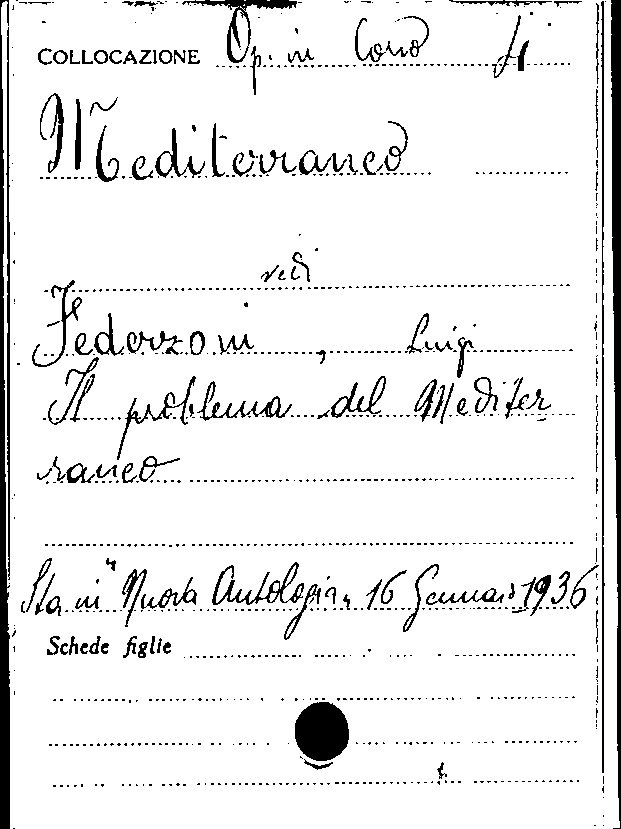 COLLOCAZIONE Op. in Corso
Mediterraneo
vedi
Federzoni, Luigi
Il problema del Mediter
raneo
Sta in "Nuova Antologia" 16 Gennaio 1936
Schede figlie